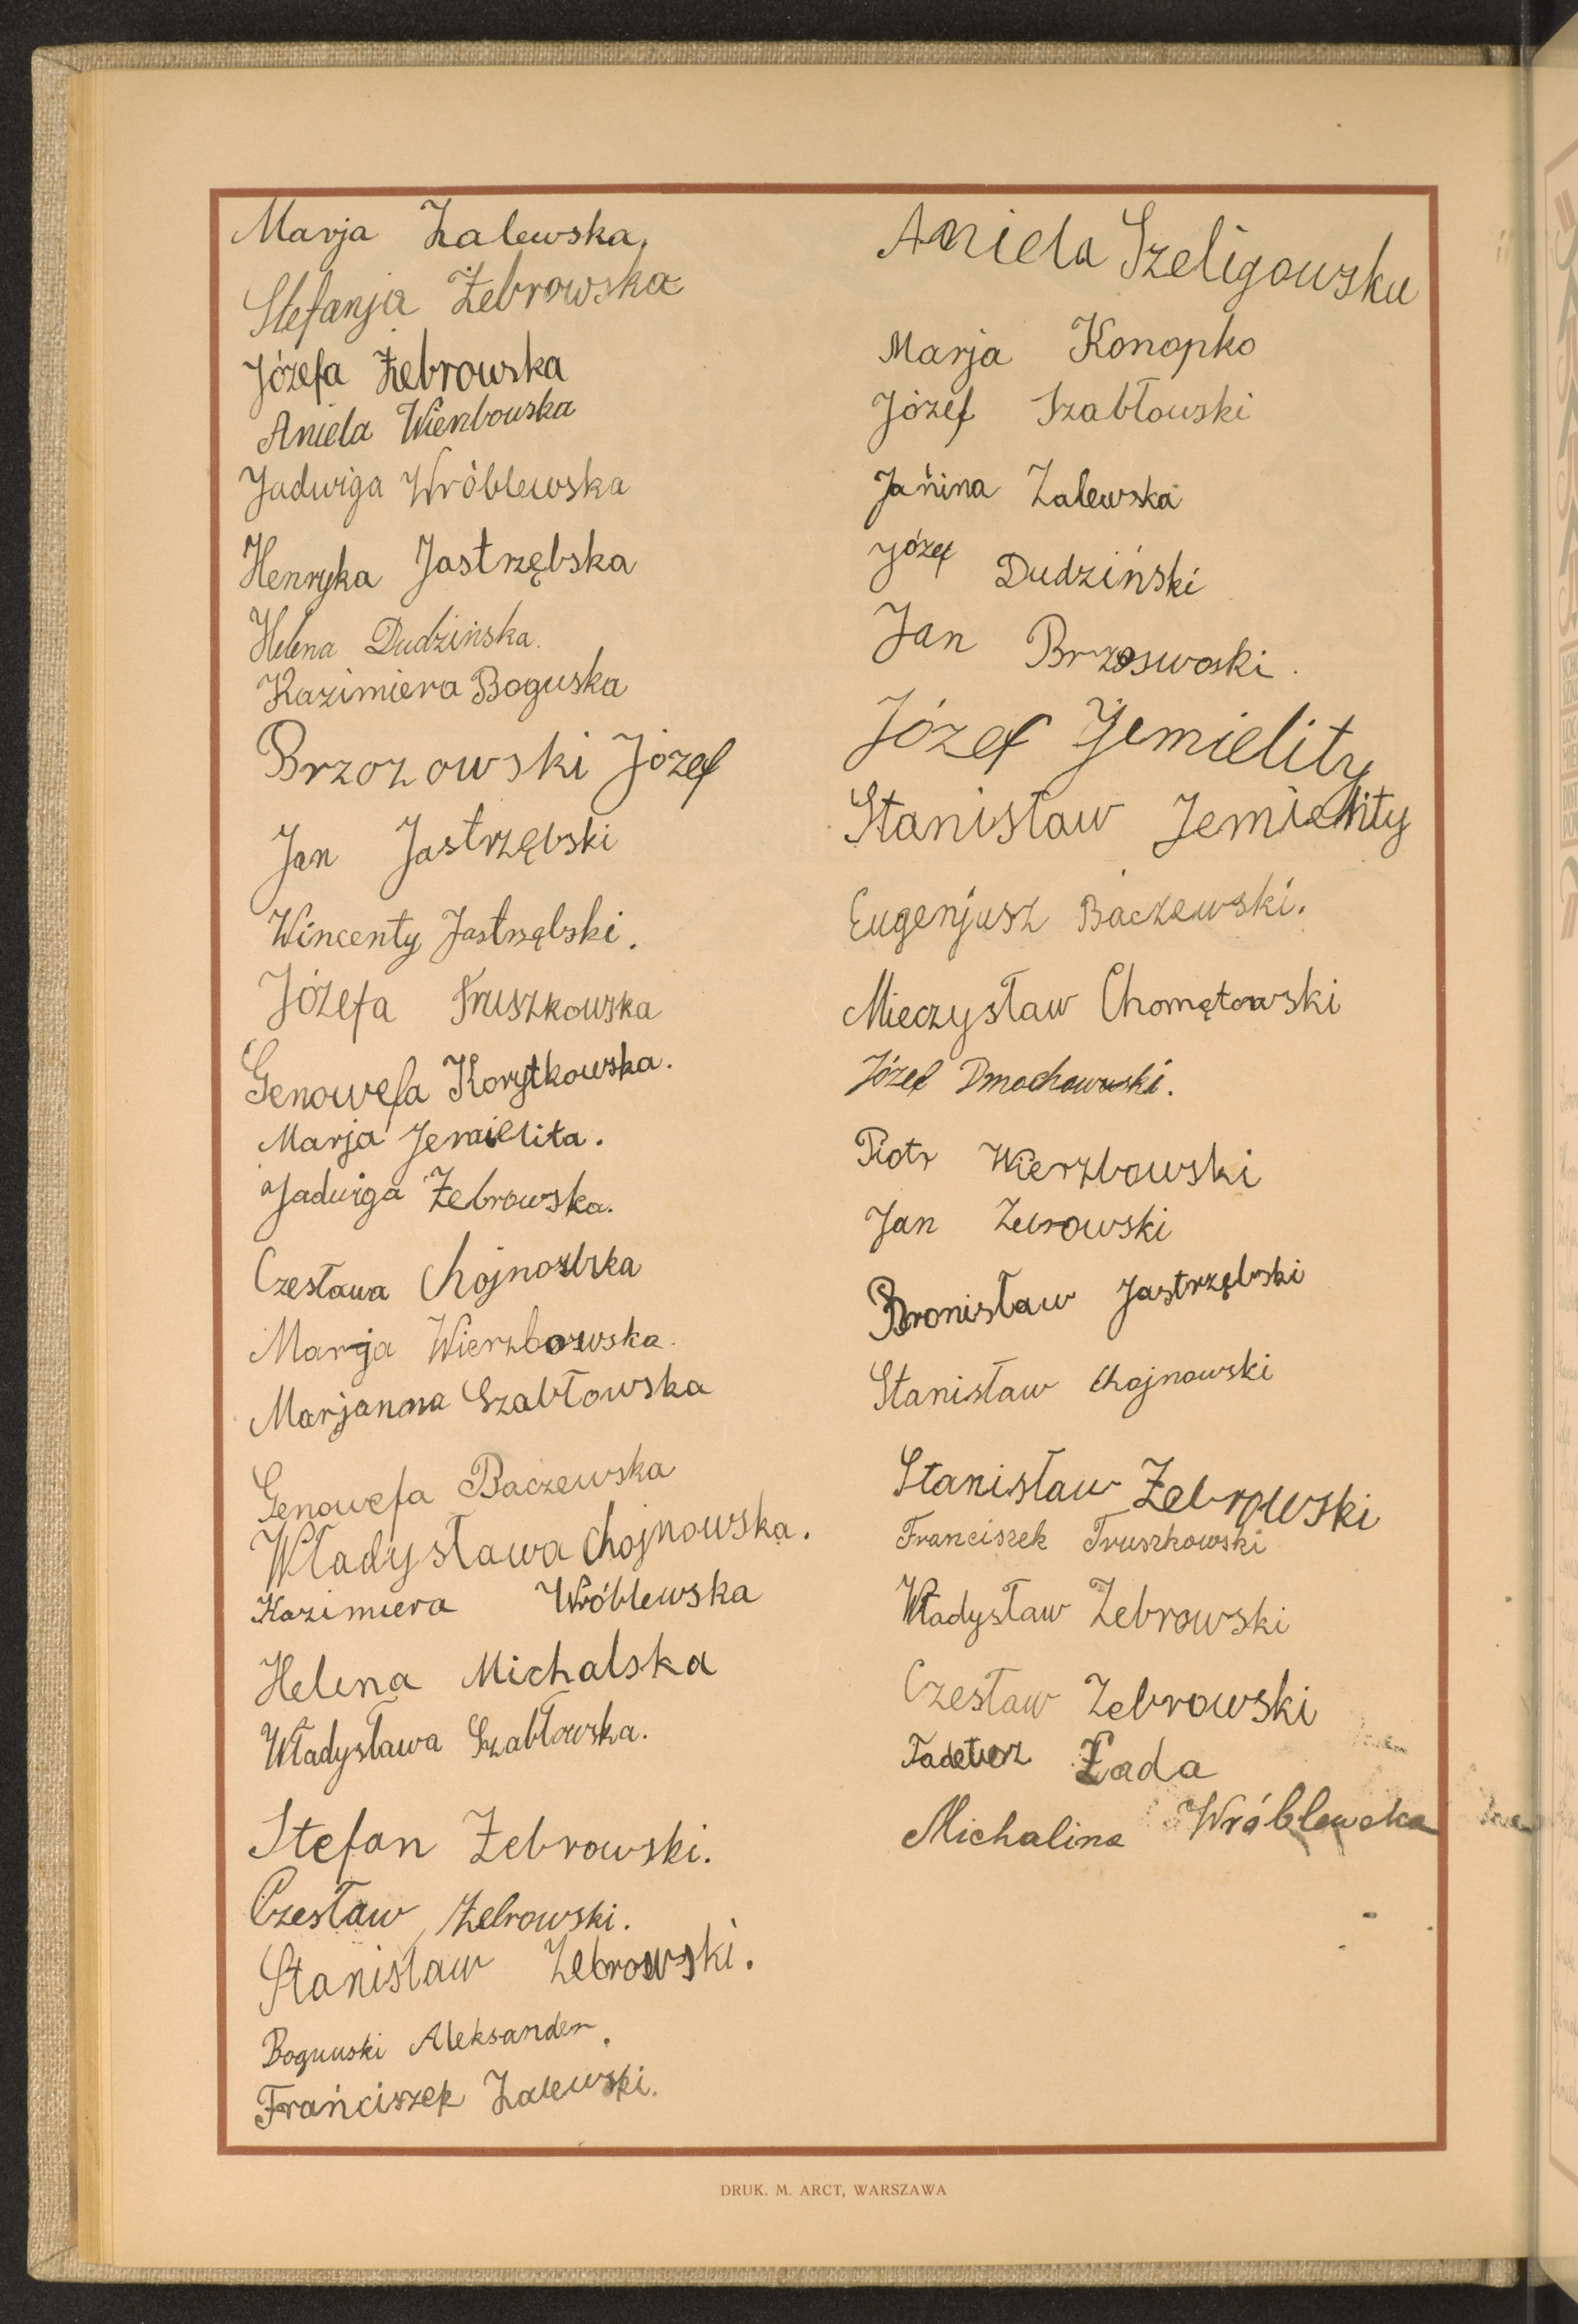 Marja Zalewska.
Stefanja Żebrowska
Józefa Żebrowska
Aniela Wierzbowska
Jadwiga Wróblewska
Henryka Jastrzębska
Helena Dudzińska.
Kazimiera Boguska
Brzozowski Józef
Jan Jastrzębski
Wincenty Jastrzębski.
Józefa Truszkowska
Genowefa Korytkowska.
Marja Jemielita.
Jadwiga Żebrowska.
Czesława Chojnowska
Marja Wierzbowska.
Marjanna Szabłowska
Genowefa Baczewska
Władysława Chojnowska.
Kazimiera Wróblewska
Helena Michalska
Władysława Szabłowska.
Stefan Żebrowski.
Czesław Żebrowski.
Stanisław Żebrowski.
Boguuski Aleksander.
Frańciszek Zalewski.
Aniela Szeligowska
Marja Konopko
Józef Szabłowski
Jańina Zalewska
Józef Dudziński
Jan Brzoswoski.
Józef Jemielity
Stanisław Jemielity
Eugenjusz Baczewski.
Mieczysław Chomętowski
Józef Dmochowski.
Piotr Wierzbowski
Jan Zebrowski
Bronisław Jastrzębski
Stanisław Chojnowski
Stanisław Żebrowski
Franciszek Truszkowski
Władysław Zebrowski
Czesław Zebrowski
Tadeusz Łada
Michalina Wróblewska
DRUK. M. ARCT, WARSZAWA